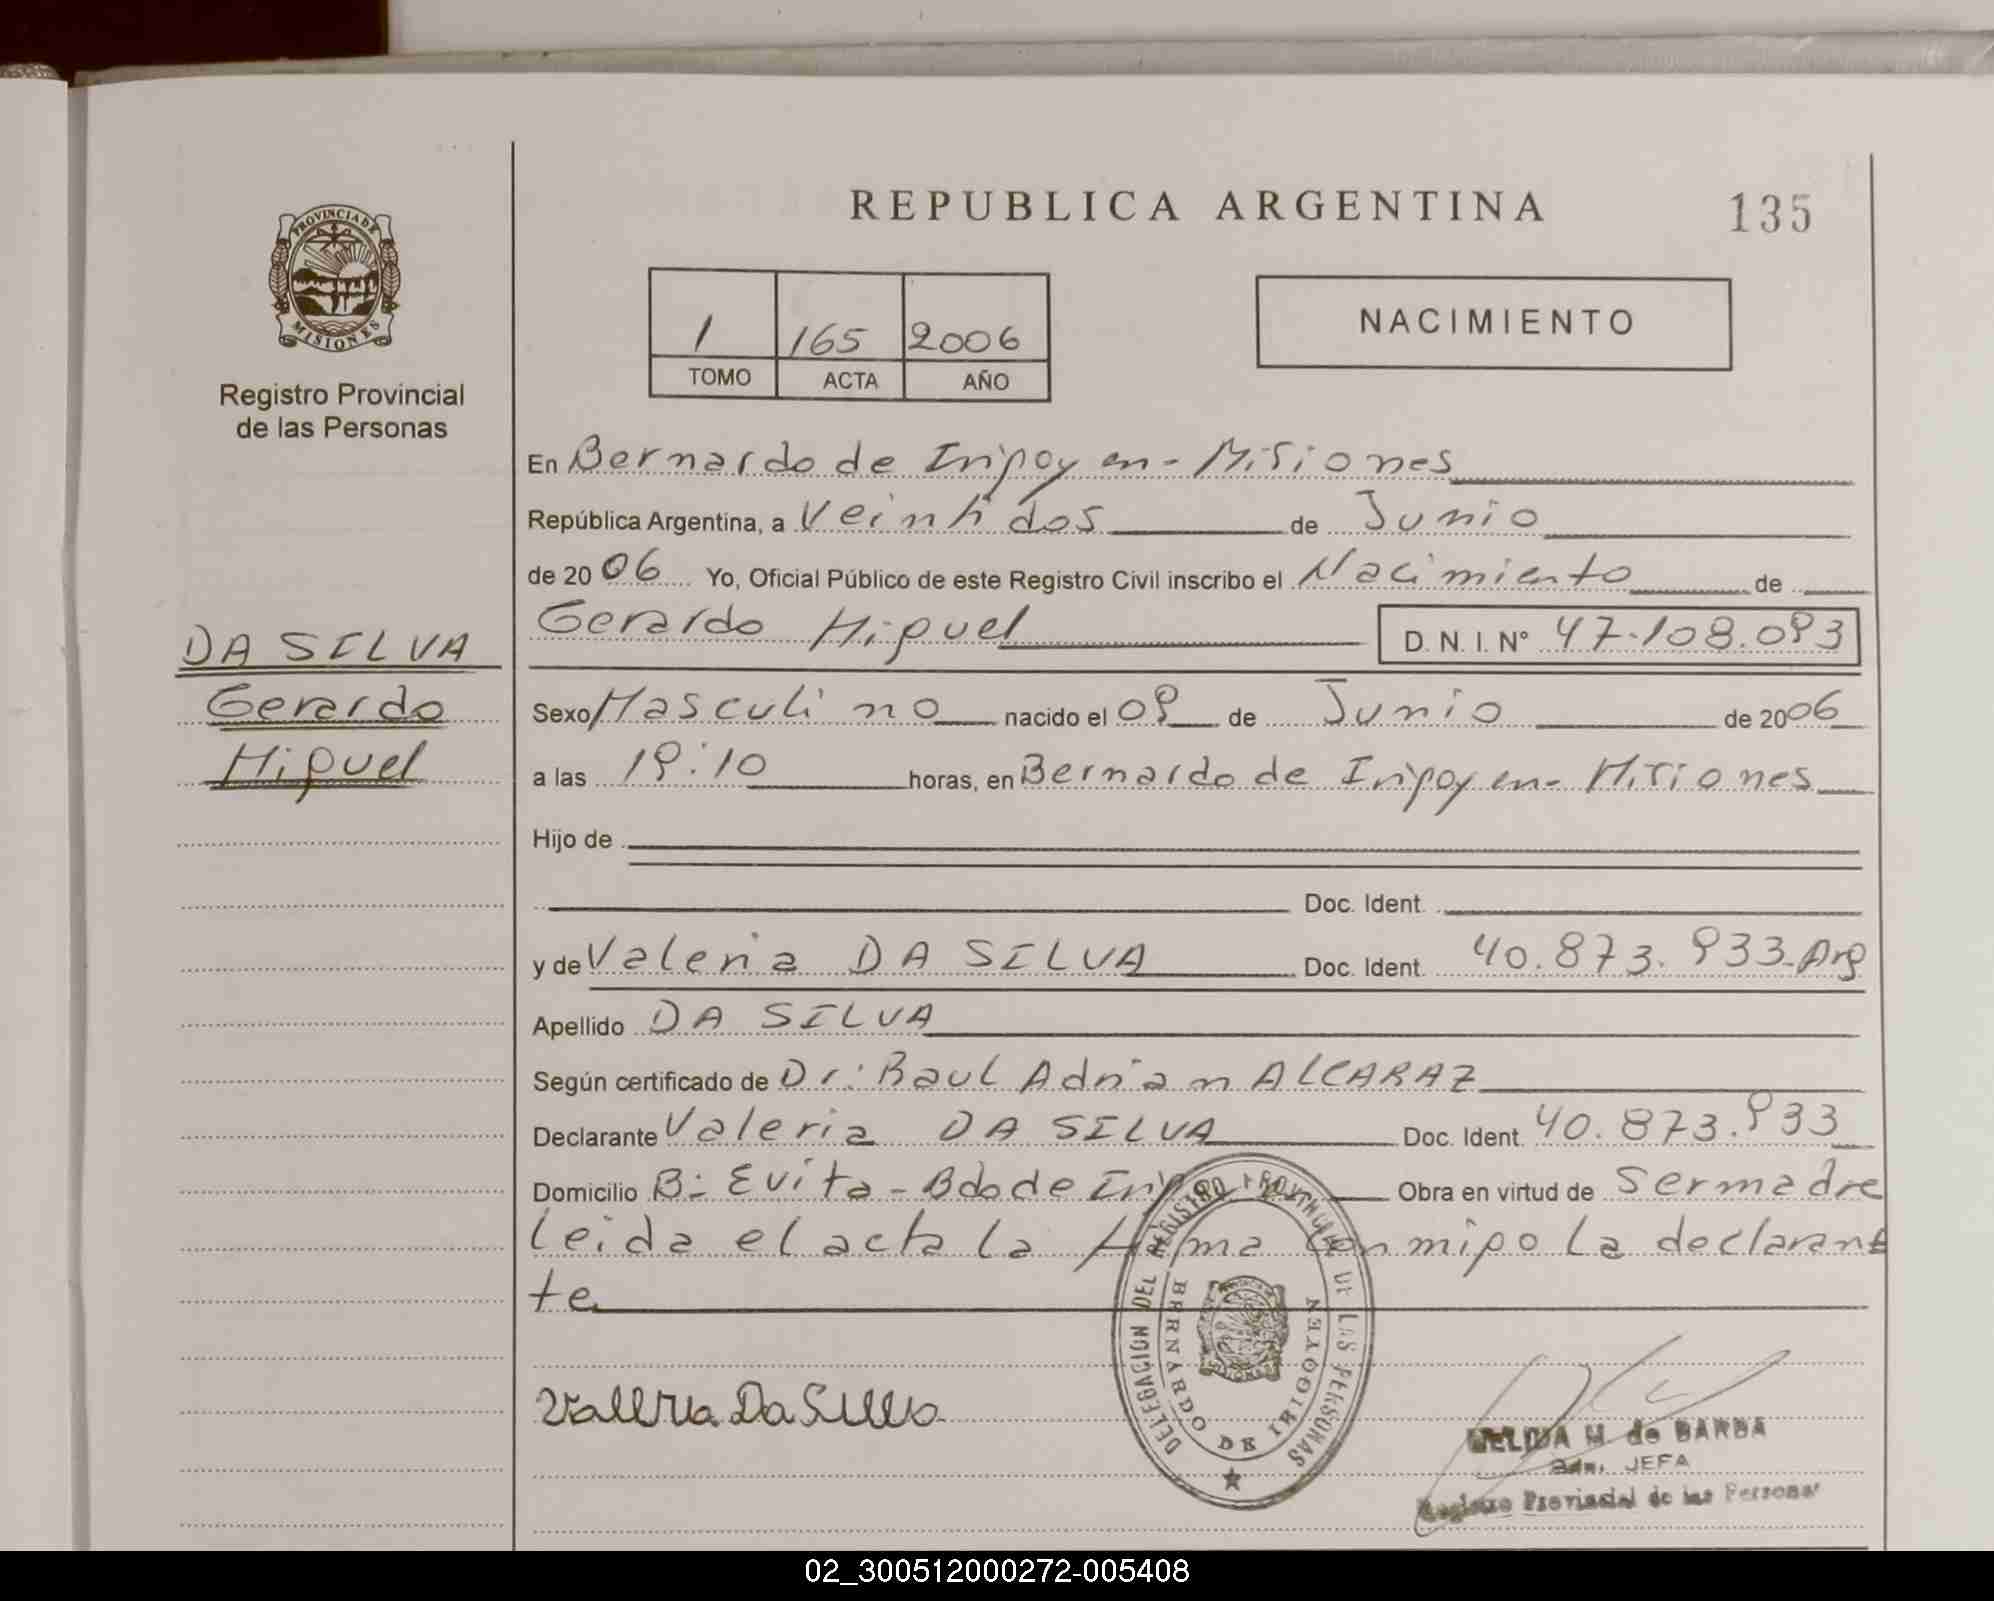 REPUBLICA ARGENTINA
135
PROVINCIA DE
MISIONES
Registro Provincial
de las Personas
1 165 2006
TOMO ACTA AÑO
NACIMIENTO
En Bernardo de Irigoyen - Misiones
República Argentina, a Veintidos de Junio
de 2006 Yo, Oficial Público de este Registro Civil inscribo el Nacimiento de
Gerardo Miguel D. N. I. N° 47.108.093
DA SILVA
Gerardo
Miguel
Sexo Masculino nacido el 09 de Junio de 2006
a las 19:10 horas, en Bernardo de Irigoyen - Misiones
Hijo de
Doc. Ident.
y de Valeria DA SILVA Doc. Ident. 40.873.933-Arg
Apellido DA SILVA
Según certificado de Dr: Raul Adrian ALCARAZ
Declarante Valeria DA SILVA Doc. Ident. 40.873.933
Domicilio B: Evita - Bdo de Obra en virtud de ser madre
Leida el acta la firma conmigo la declaran
te
Valeria Da Silva
DELEGACION DEL REGISTRO PROVINCIAL DE LAS PERSONAS
BERNARDO DE IRIGOYEN
M. de BARBA
Adm. JEFA
Registro Provincial de las Personas
02_300512000272-005408